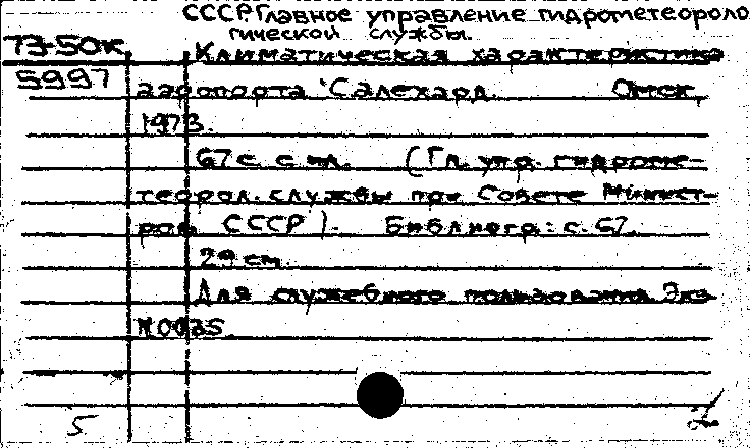 СССР. Главное управление гидрометеороло
гической службы.
73-50к
Климатическая характеристика
5997
аэропорта Салехард. Омск,
1973.
67 с. с ил. (Гл. упр. гидроме-
теорол. службы при Совете Минист-
ров СССР). Библиогр.: с. 67.
29 см.
Для служебного пользования. Экз.
N0035
5